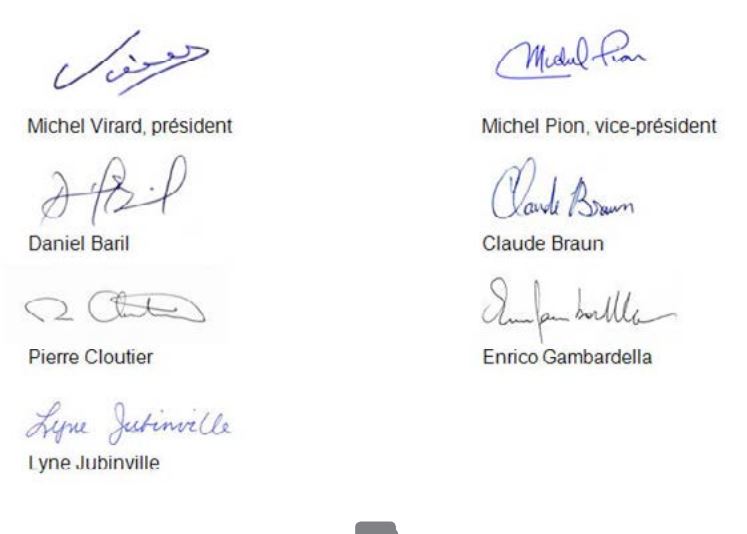 Michel Virard, président
Michel Pion
Michel Pion, vice-président
Daniel Baril
Claude Braun
Claude Braun
Pierre Cloutier
Enrico Gambardella
Lyne Jubinville
Lyne Jubinville